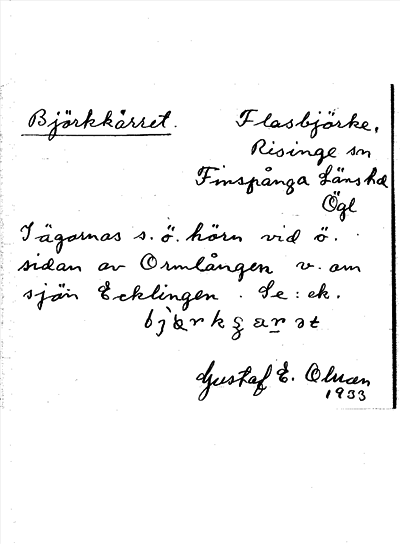 Björkkärret.
Flasbjörke,
Risinge sn
Finspånga Länshd
Ögl
I ägornas s.ö. hörn vid ö.
sidan av Ormlången v. om
sjön Ecklingen. Se: ek.
Gustaf E.
1933